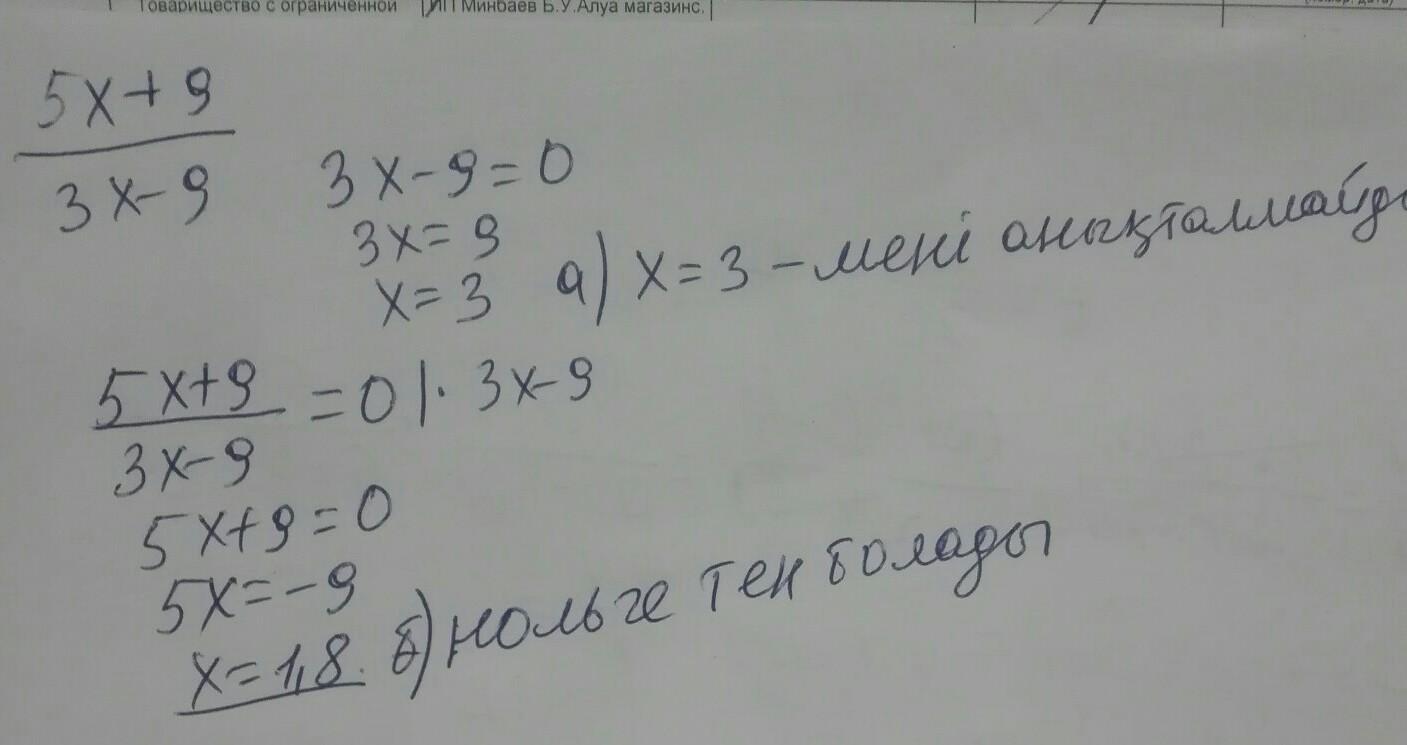 Товарищество с ограниченной | ИП Минбаев Б.У.Алуа магазинс. |
5x+9
3x-9
3x-9=0
3x=9
x=3 а) x=3 -мені анықталмайд
5x+9
3x-9
=0 |· 3x-9
5x+9=0
5x=-9
x=1,8 б) нольге тең болады